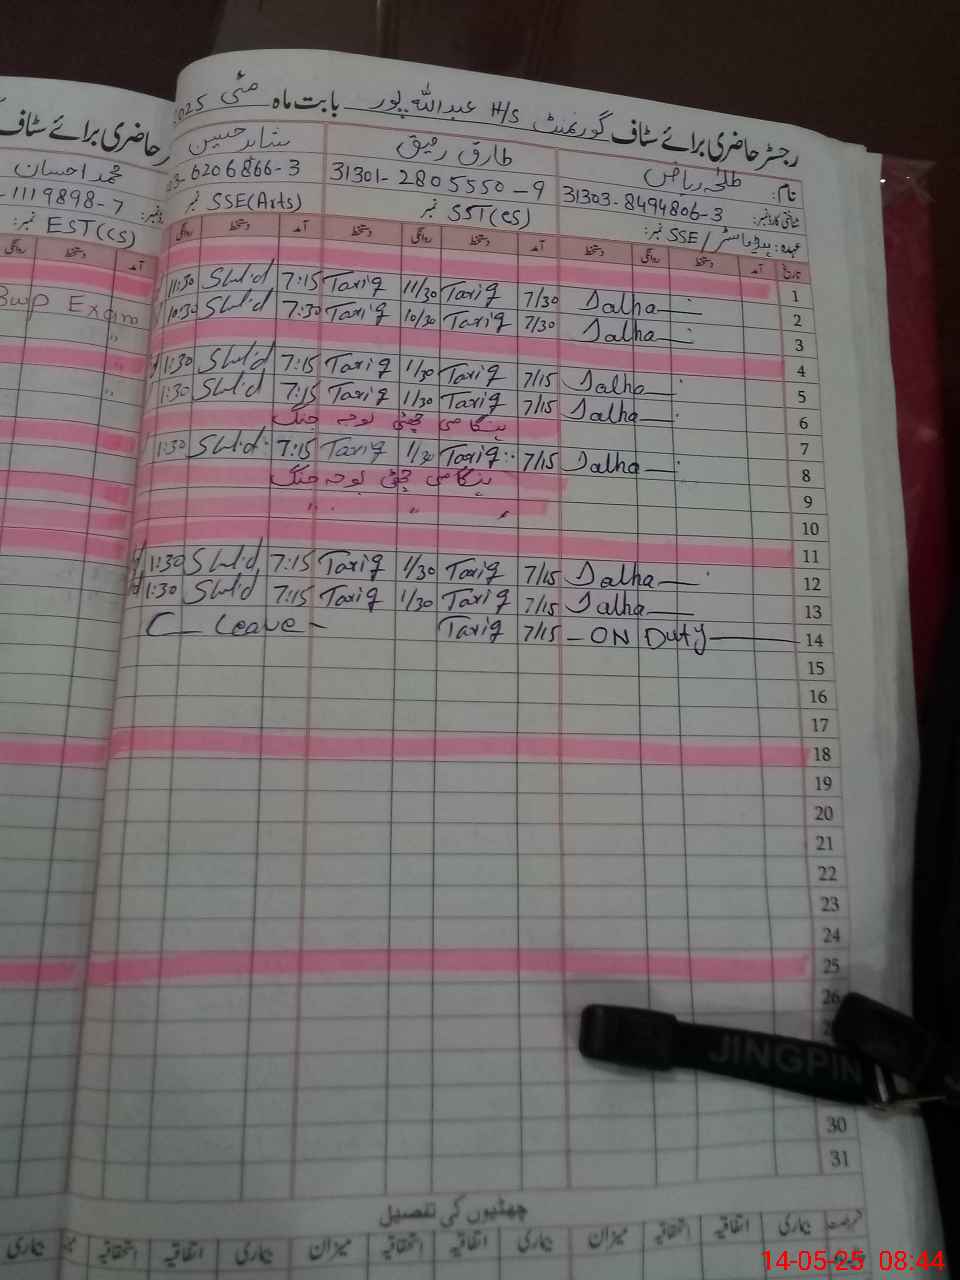 رجسٹر حاضری برائے سٹاف گورنمنٹ H/S عبداللہ پور بابت ماہ مئی 2025
حاضری برائے سٹاف
نام: طلحہ ریاض
طارق رفیق
شاہد حسین
محمد احسان
شناختی کارڈ نمبر: 31303-8494806-3
31301-2805550-9
6206866-3
1119898-7
عہدہ: ہیڈ ماسٹر/SSE نمبر:
SST(CS) نمبر
SSE(Arts) نمبر
EST(CS) نمبر:
تاریخ آمد دستخط روانگی دستخط آمد دستخط روانگی دستخط آمد دستخط روانگی آمد دستخط روانگی
1
2 Dalha 7/30 Tariq 11/30 Tariq 7:15 Shld 11:30
3 Dalha 7/30 Tariq 10/30 Tariq 7:30 Shld 10:30 Exam
4
5 Dalha 7/15 Tariq 1/30 Tariq 7:15 Shld 1:30
6 Dalha 7/15 Tariq 1/30 Tariq 7:15 Shld 1:30
7 ہنگامی چھٹی بوجہ جنگ
8 Dalha 7/15 Tariq 1/30 Tariq 7:15 Shld 1:30
9 ہنگامی چھٹی بوجہ جنگ
10 " " "
11
12 Dalha 7/15 Tariq 1/30 Tariq 7:15 Shld 1:30
13 Dalha 7/15 Tariq 1/30 Tariq 7:15 Shld 1:30
14 ON Duty 7/15 Tariq C Leave
15
16
17
18
19
20
21
22
23
24
25
26
30
31
JINGPIN
چھٹیوں کی تفصیل
بیماری اتفاقیہ استحقاقیہ میزان بیماری اتفاقیہ استحقاقیہ میزان بیماری اتفاقیہ استحقاقیہ بیماری
14-05-25 08:44